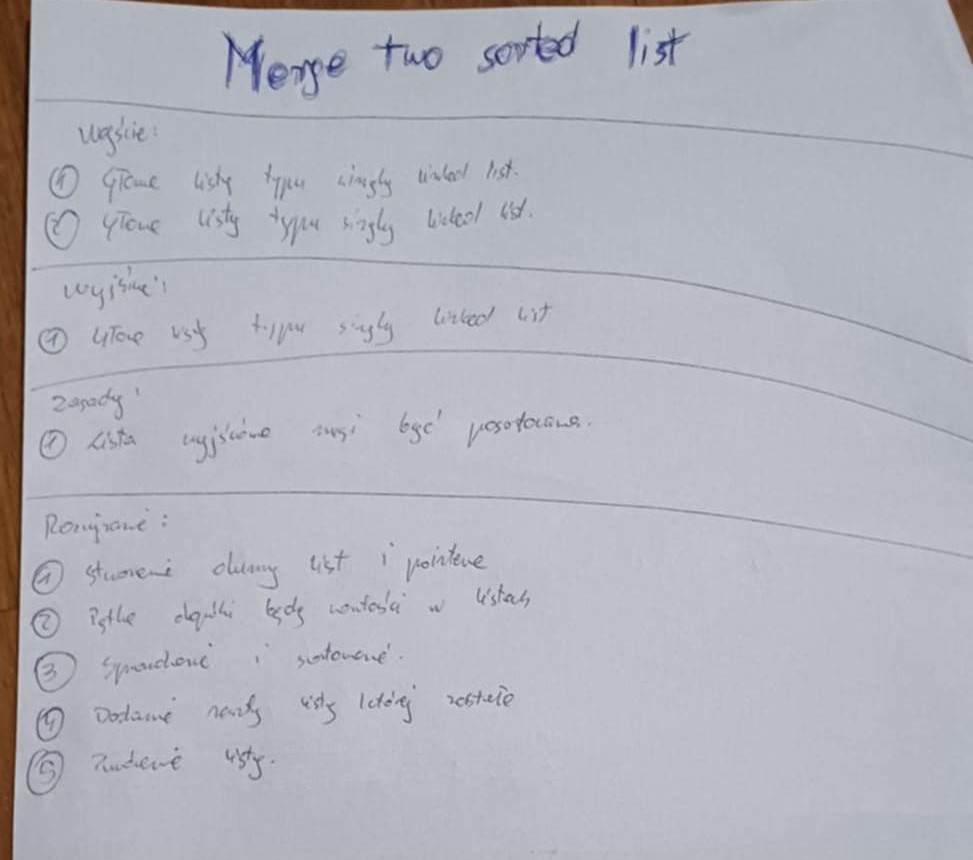 Merge two sorted list
Wejście:
① Głowe listy typu singly linked list.
② Głowe listy typu singly linked list.
Wyjście:
① Głowe listy typu singly linked list
Zasady:
① Lista wyjściowa musi być posortowana.
Rozwiązanie:
① Stworzenie dummy list i pointera
② Pętla dopóki będą wartości w listach
③ Sprawdzenie i sortowanie.
④ Dodanie reszty listy której zostało
⑤ Zwrócenie listy.